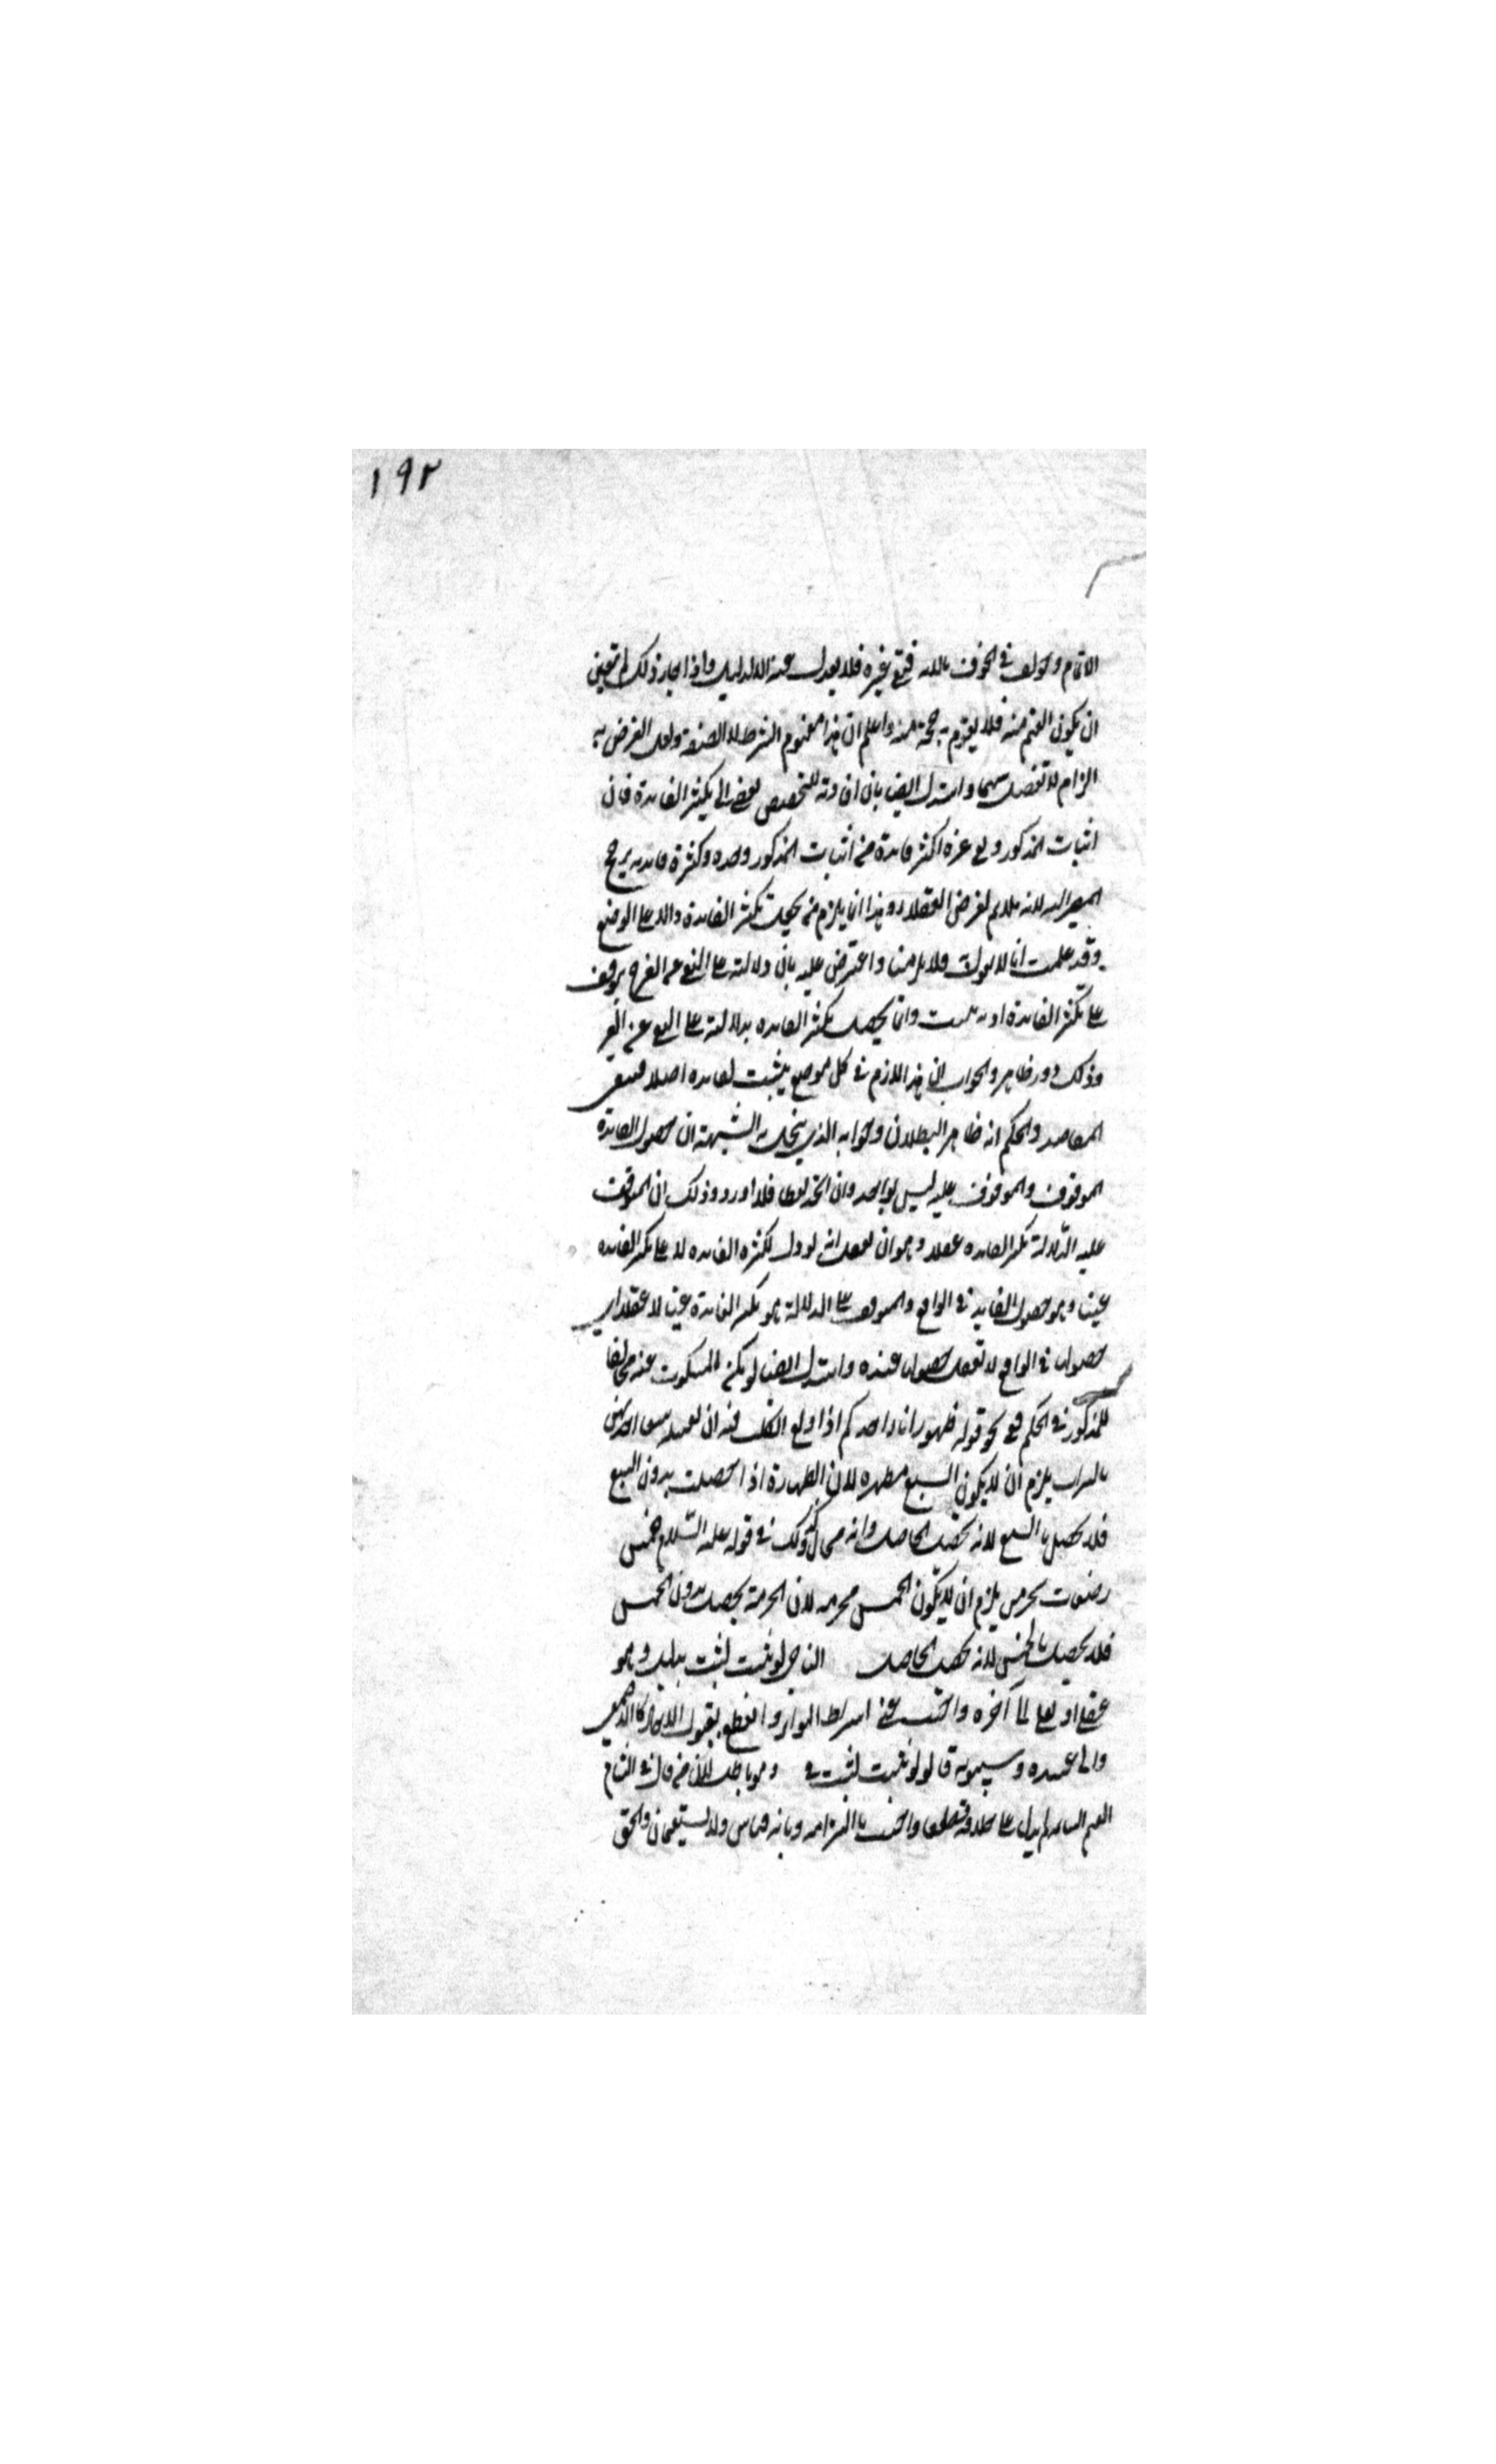 ١٩٢
الاتمام وخولف في الخوف بالآية فبقي غيره فلا يعدل عنه الا لدليل واذا جاز ذلك لم تتعين
ان يكون الفهم منه فلا يقوم به حجة منه واعلم ان هذا مفهوم الشرط لا الصفة ولعل الغرض به
الزام لا تفصل بينهما واستدل ايضا بان افادته للتخصيص يفضي الى تكثير الفايدة فان
اثبات المذكور ونفي غيره اكثر فايدة من اثبات المذكور وحده وكثرة فايدته يرجح
المصير اليه لانه ملايم لغرض العقلاء وهذا انما يلزم من يجعل تكثر الفايدة دالا على الوضع
وقد علمت انا لا نقول به فلا يلزمنا واعترض عليه بان دلالته على النفي عن الغير يتوقف
على تكثر الفايدة اذ به تثبت وانما يحصل تكثر الفايدة بدلالته على النفي عن الغير
وذلك دور ظاهر والجواب ان هذا لازم في كل موضع يثبت لفايدة اصلا فينتفي
المقاصد والحكم انه ظاهر البطلان وجوابه الذي ينحل به الشبهة ان حصول الفايدة
الموقوف والموقوف عليه ليس بواحد وان اتحد لفظا فلا دور وذلك ان الموقوف
عليه الدلالة تكثر الفايدة عقلا وهو ان نعقل انه لو دل لكثرة الفايدة لا على تكثر الفايدة
عينا وهو حصول الفايدة في الواقع والموقوف على الدلالة هو تكثر الفايدة عينا لا عقلا اي
حصوله في الواقع لا تعقل حصوله عنده واستدل ايضا لو لم يكن المسكوت عنه مخالفا
للمذكور في الحكم ففي نحو قوله طهور اناء احدكم اذا ولغ الكلب فيه ان يغسله سبعا احديهن
بالتراب يلزم ان لا يكون السبع مطهرة لان الطهارة اذا حصلت بدون السبع
فلا تحصل بالسبع لانه تحصيل الحاصل وانه محال وكذلك في قوله عليه السلام خمس
رضعات يحرمن يلزم ان لا يكون الخمس محرمة لان الحرمة يحصل بدون الخمس
فلا يحصل بالخمس لانه تحصيل الحاصل النافي لو ثبت لثبت بدليل وهو
عقلي او نقلي الى آخره واجيب بمنع اشتراط التواتر والقطع بقبول الآحاد كالاصمعي
وابي عبيدة وسيبويه قالوا لو ثبت لثبت في وهو باطل لان من قال في الشام
الغنم السائمة لم يدل على خلافه قطعا واجيب بالتزامه وبانه قياس ولا يستقيمان والحق